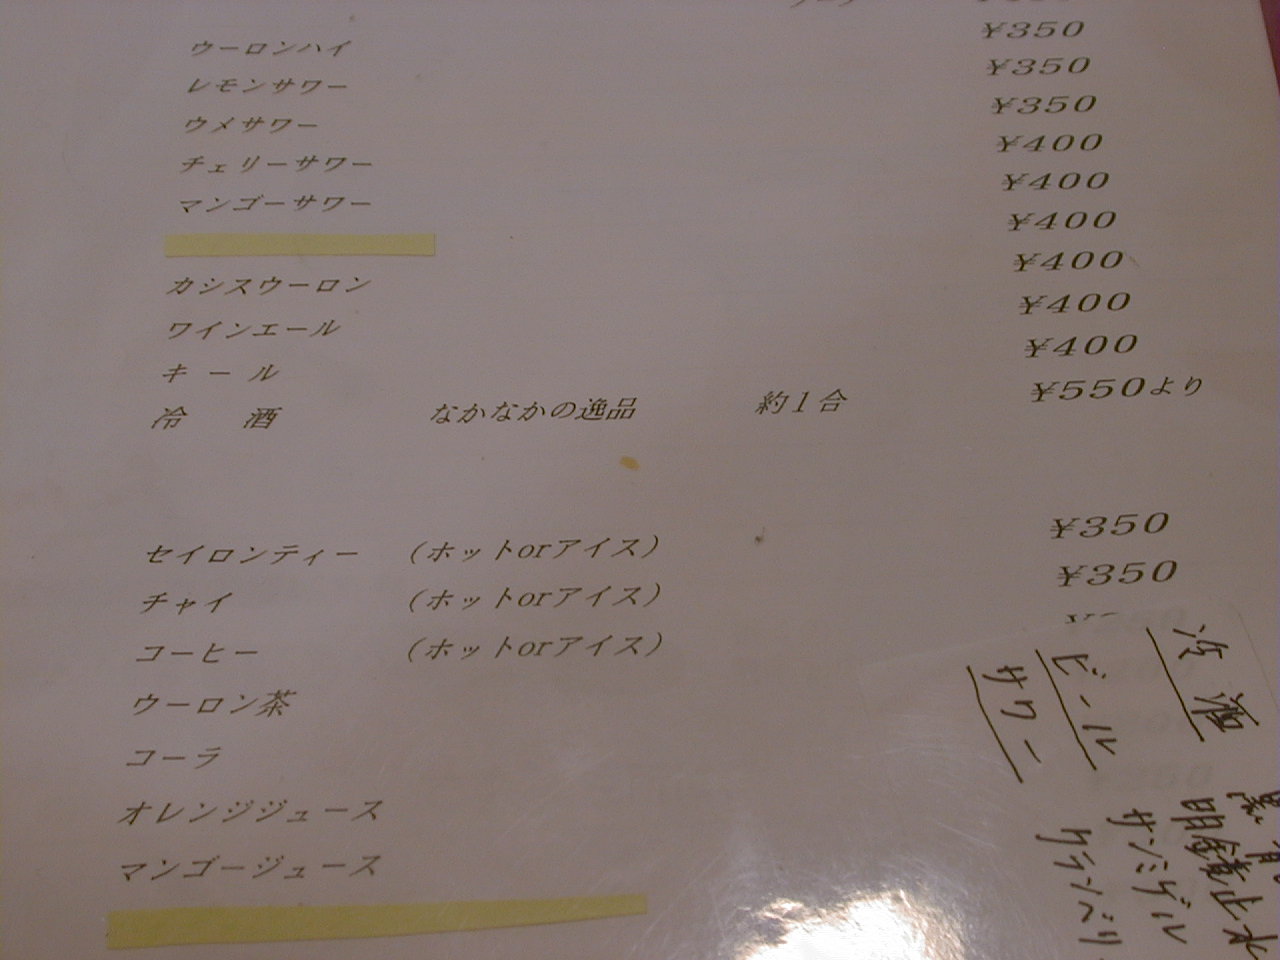 ウーロンハイ ¥350
レモンサワー ¥350
ウメサワー ¥350
チェリーサワー ¥400
マンゴーサワー ¥400
¥400
カシスウーロン ¥400
ワインエール ¥400
キール ¥400
冷 酒 なかなかの逸品 約1合 ¥550より
セイロンティー (ホットorアイス) ¥350
チャイ (ホットorアイス) ¥350
コーヒー (ホットorアイス)
ウーロン茶
コーラ
オレンジジュース
マンゴージュース
冷酒
明鏡止水
ビール
サンミゲル
サワー
クランベリ